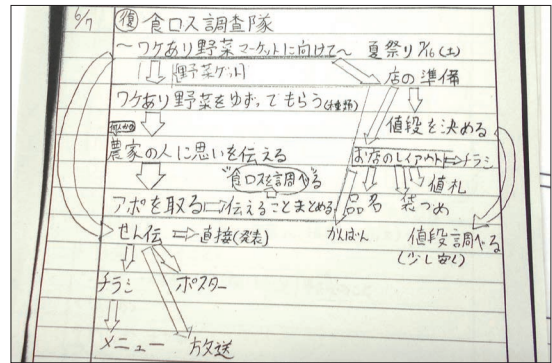 6/7 復 食ロス調査隊
～ワケあり野菜マーケットに向けて～ 夏祭り7/16(土)
野菜ゲット 店の準備
ワケあり野菜をゆずってもらう
値段を決める
農家の人に思いを伝える お店のレイアウト チラシ
食ロスを調べる 値札
アポを取る 伝えることまとめる 品名 袋つめ
せん伝 直接(発表) かんばん 値段調べる
(少し安く)
チラシ ポスター
メニュー 放送